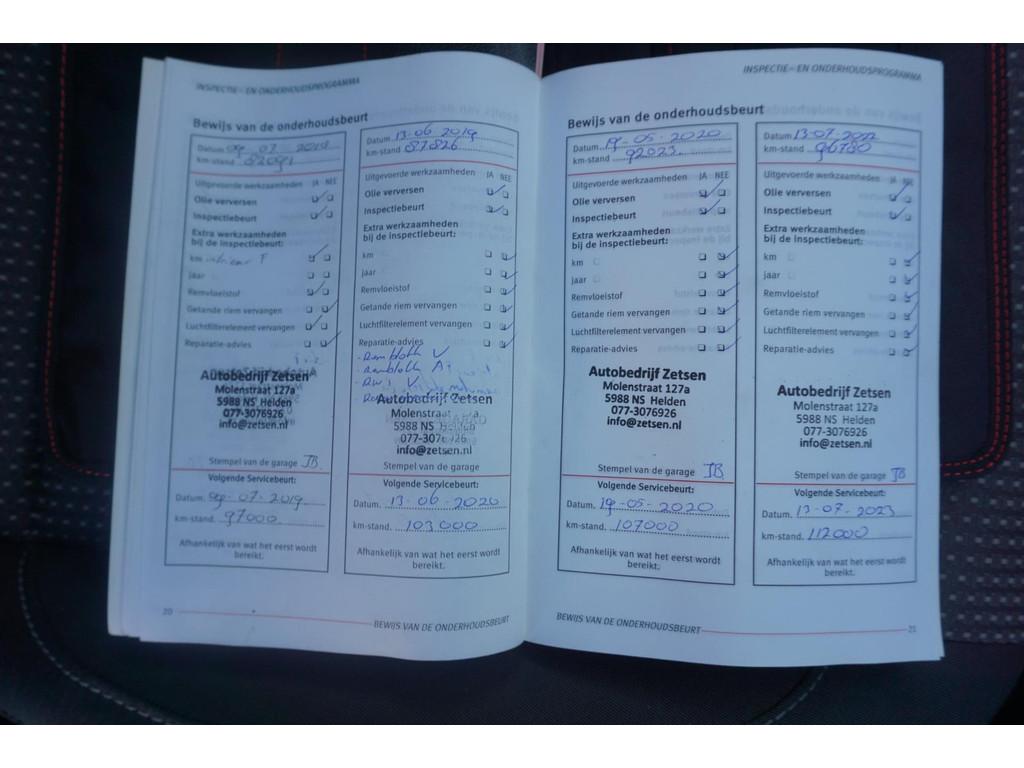 INSPECTIE- EN ONDERHOUDSPROGRAMMA
Bewijs van de onderhoudsbeurt
Datum 09 07 2018
km-stand 82091
Uitgevoerde werkzaamheden JA NEE
Olie verversen
Inspectiebeurt
Extra werkzaamheden
bij de inspectiebeurt:
km interieur F
jaar
Remvloeistof
Getande riem vervangen
Luchtfilterelement vervangen
Reparatie-advies
Autobedrijf Zetsen
Molenstraat 127a
5988 NS Helden
077-3076926
info@zetsen.nl
Stempel van de garage JB
Volgende Servicebeurt:
Datum. 09-07-2019
km-stand. 97000
Afhankelijk van wat het eerst wordt
bereikt.
Datum 13-06 2019
km-stand 87826
Uitgevoerde werkzaamheden JA NEE
Olie verversen
Inspectiebeurt
Extra werkzaamheden
bij de inspectiebeurt:
km
jaar
Remvloeistof
Getande riem vervangen
Luchtfilterelement vervangen
Reparatie-advies
- Remblokk V
- Remblokk A
Autobedrijf Zetsen
Molenstraat
5988 NS Helden
077-3076926
info@zetsen.nl
Stempel van de garage
Volgende Servicebeurt:
Datum. 13-06-2020
km-stand. 103000
Afhankelijk van wat het eerst wordt
bereikt.
20
BEWIJS VAN DE ONDERHOUDSBEURT
INSPECTIE- EN ONDERHOUDSPROGRAMMA
Bewijs van de onderhoudsbeurt
Datum 19-05-2020
km-stand 92023
Uitgevoerde werkzaamheden JA NEE
Olie verversen
Inspectiebeurt
Extra werkzaamheden
bij de inspectiebeurt:
km
jaar
Remvloeistof
Getande riem vervangen
Luchtfilterelement vervangen
Reparatie-advies
Autobedrijf Zetsen
Molenstraat 127a
5988 NS Helden
077-3076926
info@zetsen.nl
Stempel van de garage JB
Volgende Servicebeurt:
Datum. 19-05-2020
km-stand. 107000
Afhankelijk van wat het eerst wordt
bereikt.
Datum 13-07-2022
km-stand 96780
Uitgevoerde werkzaamheden JA NEE
Olie verversen
Inspectiebeurt
Extra werkzaamheden
bij de inspectiebeurt:
km
jaar
Remvloeistof
Getande riem vervangen
Luchtfilterelement vervangen
Reparatie-advies
Autobedrijf Zetsen
Molenstraat 127a
5988 NS Helden
077-3076926
info@zetsen.nl
Stempel van de garage JB
Volgende Servicebeurt:
Datum. 13-07-2023
km-stand. 112000
Afhankelijk van wat het eerst wordt
bereikt.
BEWIJS VAN DE ONDERHOUDSBEURT
21